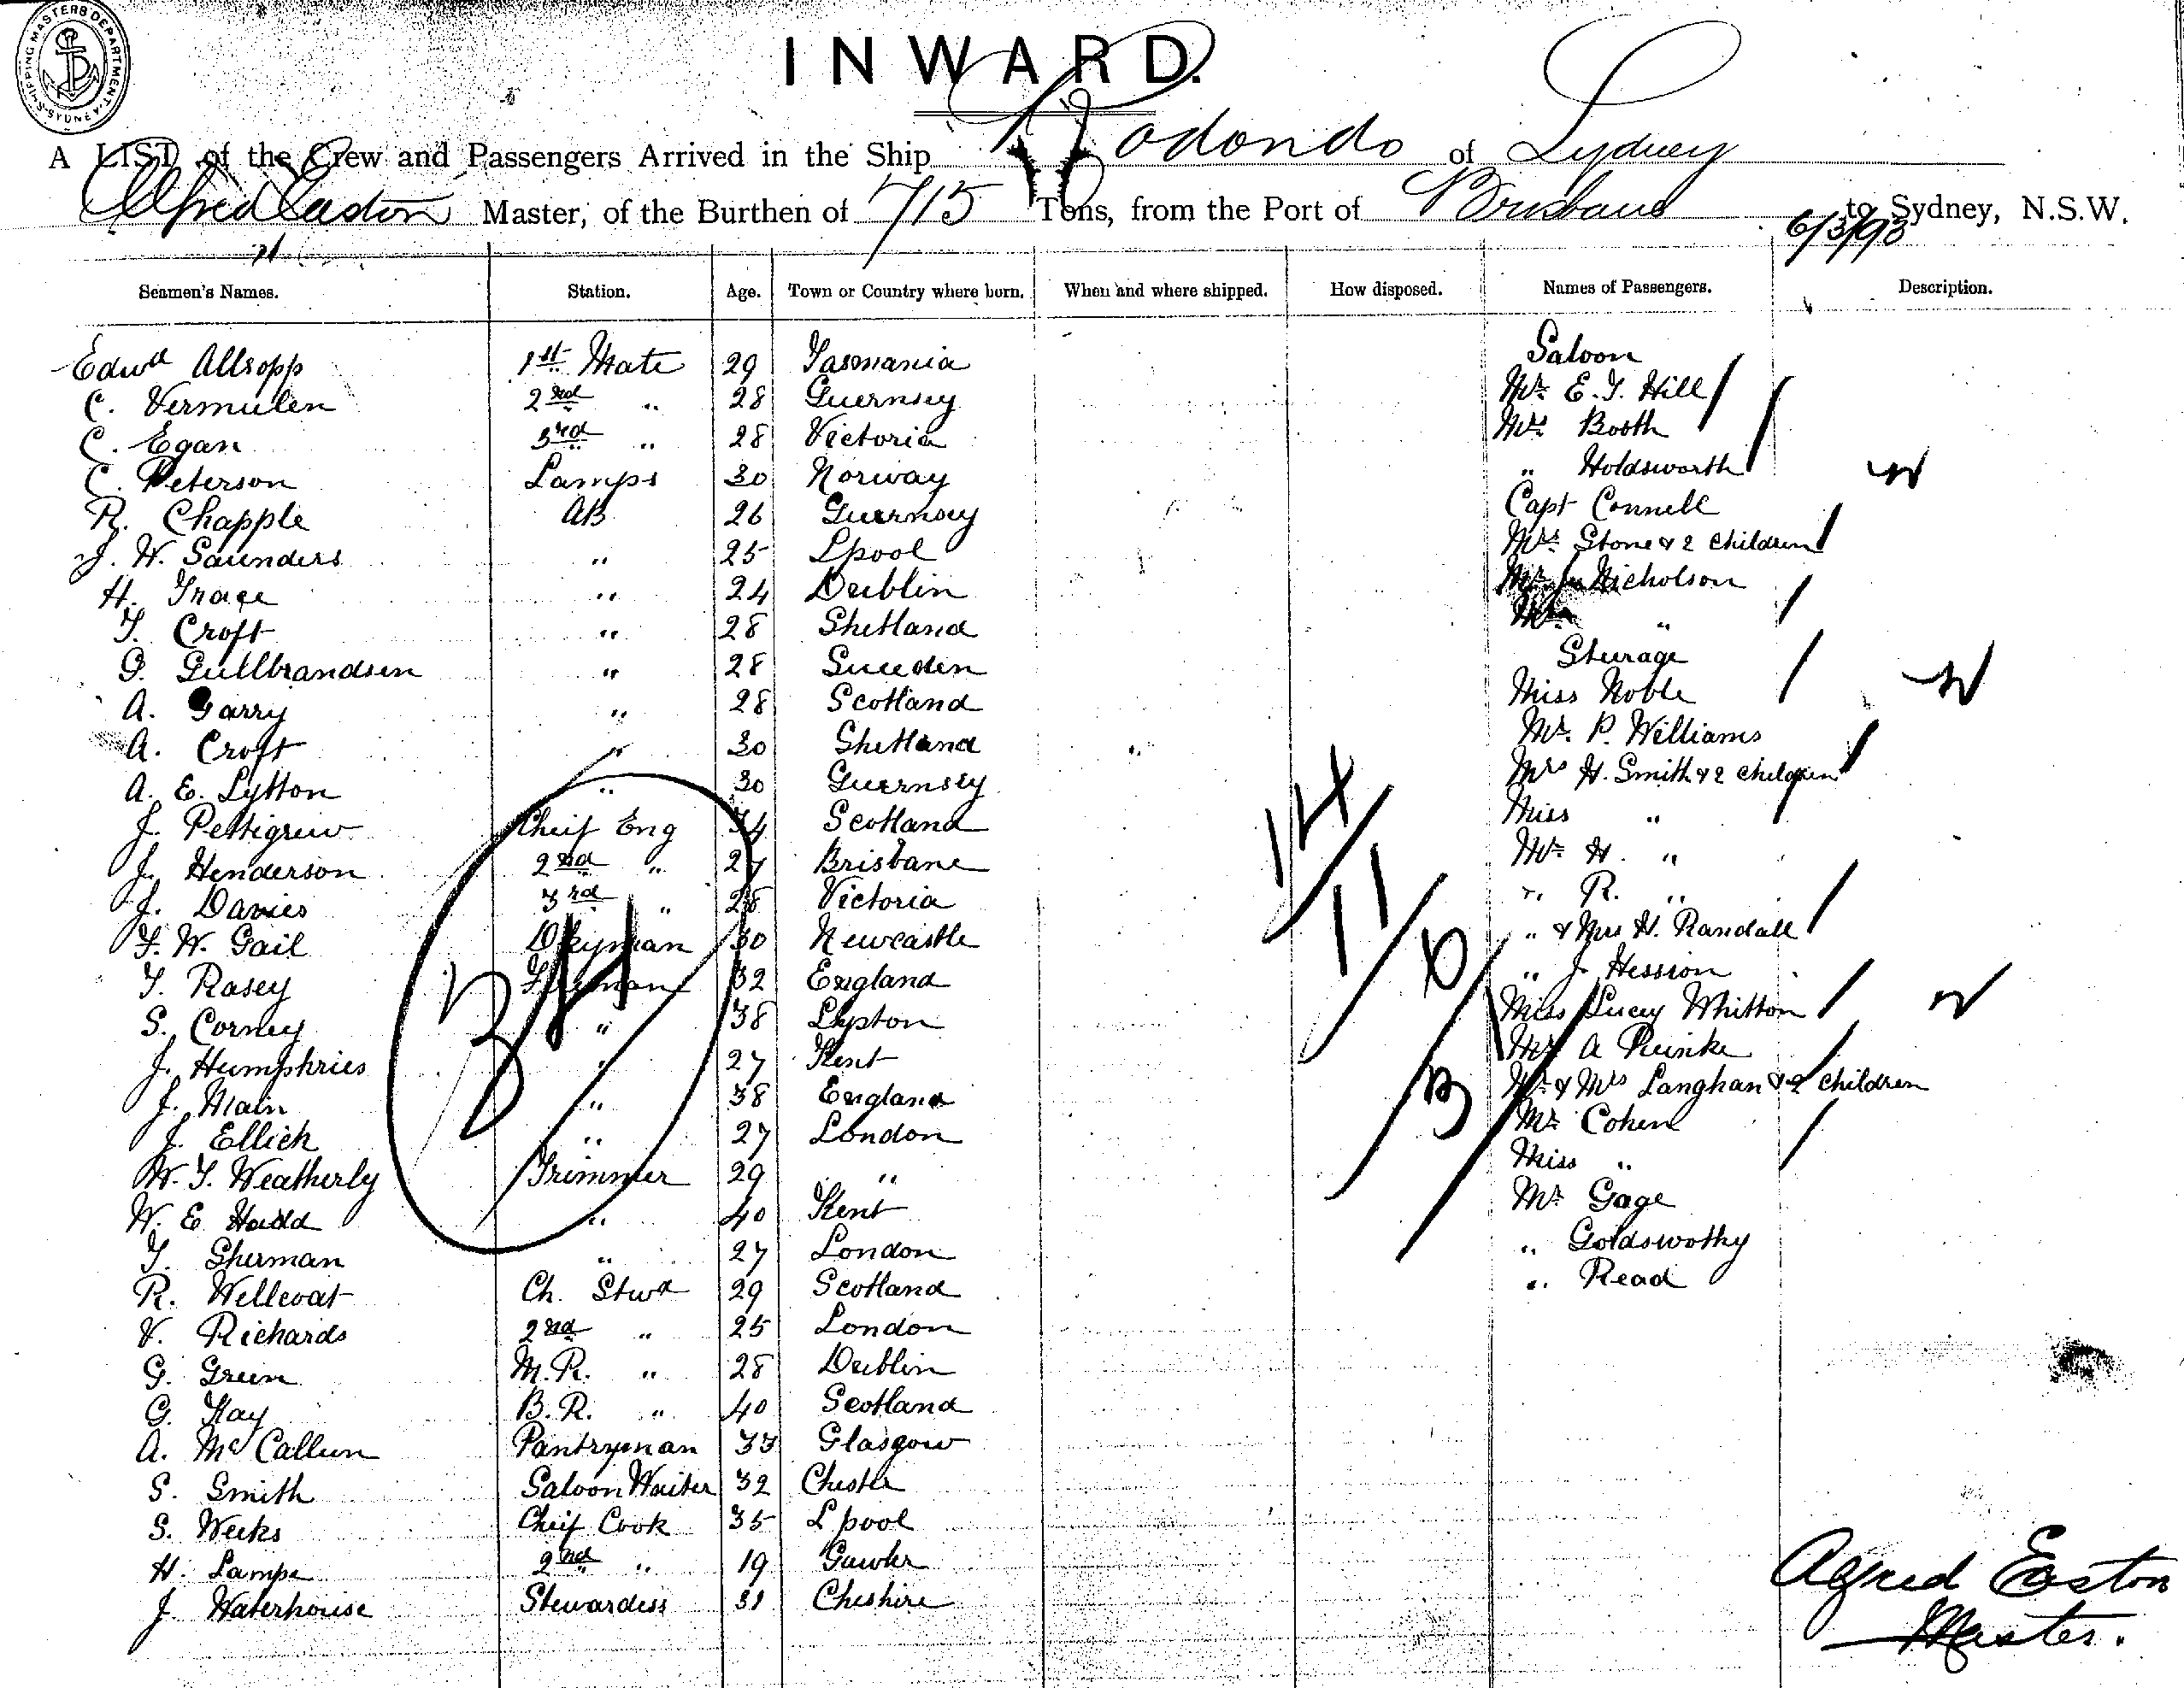 SHIPPING MASTERS DEPARTMENT SYDNEY
INWARD.
A LIST of the Crew and Passengers Arrived in the Ship Rodondo of Sydney
Alfred Easton Master, of the Burthen of 715 Tons, from the Port of Brisbane to Sydney, N.S.W.
6/3/93
Seamen's Names. Station. Age. Town or Country where born. When and where shipped. How disposed. Names of Passengers. Description.
Saloon
Edwd Allsopp 1st Mate 29 Tasmania Mr E. J. Hill
C. Vermulen 2nd " 28 Guernsey Mr Booth
C. Egan 3rd " 28 Victoria " Holdsworth
C. Peterson Lamps 30 Norway Capt Connell
R. Chapple AB 26 Guernsey Mrs Stone & 2 children
J. W. Saunders " 25 Lpool Nicholson
H. Grace " 24 Dublin "
T. Croft " 28 Shetland Steerage
G. Gullbrandsen " 28 Sweeden Miss Noble
A. Garry " 28 Scotland Mr. P. Williams
A. Croft " 30 Shetland Mrs H. Smith & 2 children
A. E. Lytton " 30 Guernsey Miss "
J. Pettigrew Cheif Eng 34 Scotland Mr H. "
J. Henderson 2nd " 27 Brisbane " R. "
J. Davies 3rd " 28 Victoria " & Mrs H. Randall
F. W. Gail Dkyman 30 Newcastle " J. Hession
T. Rasey Fireman 32 England Miss Lucy Whitton
S. Corney " 38 Lepton Mr A Reinke
J. Humphries " 27 Kent Mr & Mrs Langhan & 2 children
J. Main " 38 England Mr Cohen
J. Ellich " 27 London Miss "
W. T. Weatherly Trimmer 29 " Mr Gage
W. E. Hadd " 40 Kent " Goldsworthy
T. Sherman " 27 London " Read
R. Wellevat Ch. Stwd 29 Scotland
V. Richards 2nd " 25 London
G. Green M.R. " 28 Dublin
G. Kay B.R. " 40 Scotland
A. McCallum Pantryman 33 Glasgow
S. Smith Saloon Waiter 32 Chester
S. Weeks Cheif Cook 35 Lpool
H. Lampe 2nd " 19 Gawler
J. Waterhouse Stewardess 31 Cheshire
34
14
11
6
13
Alfred Easton
Master.